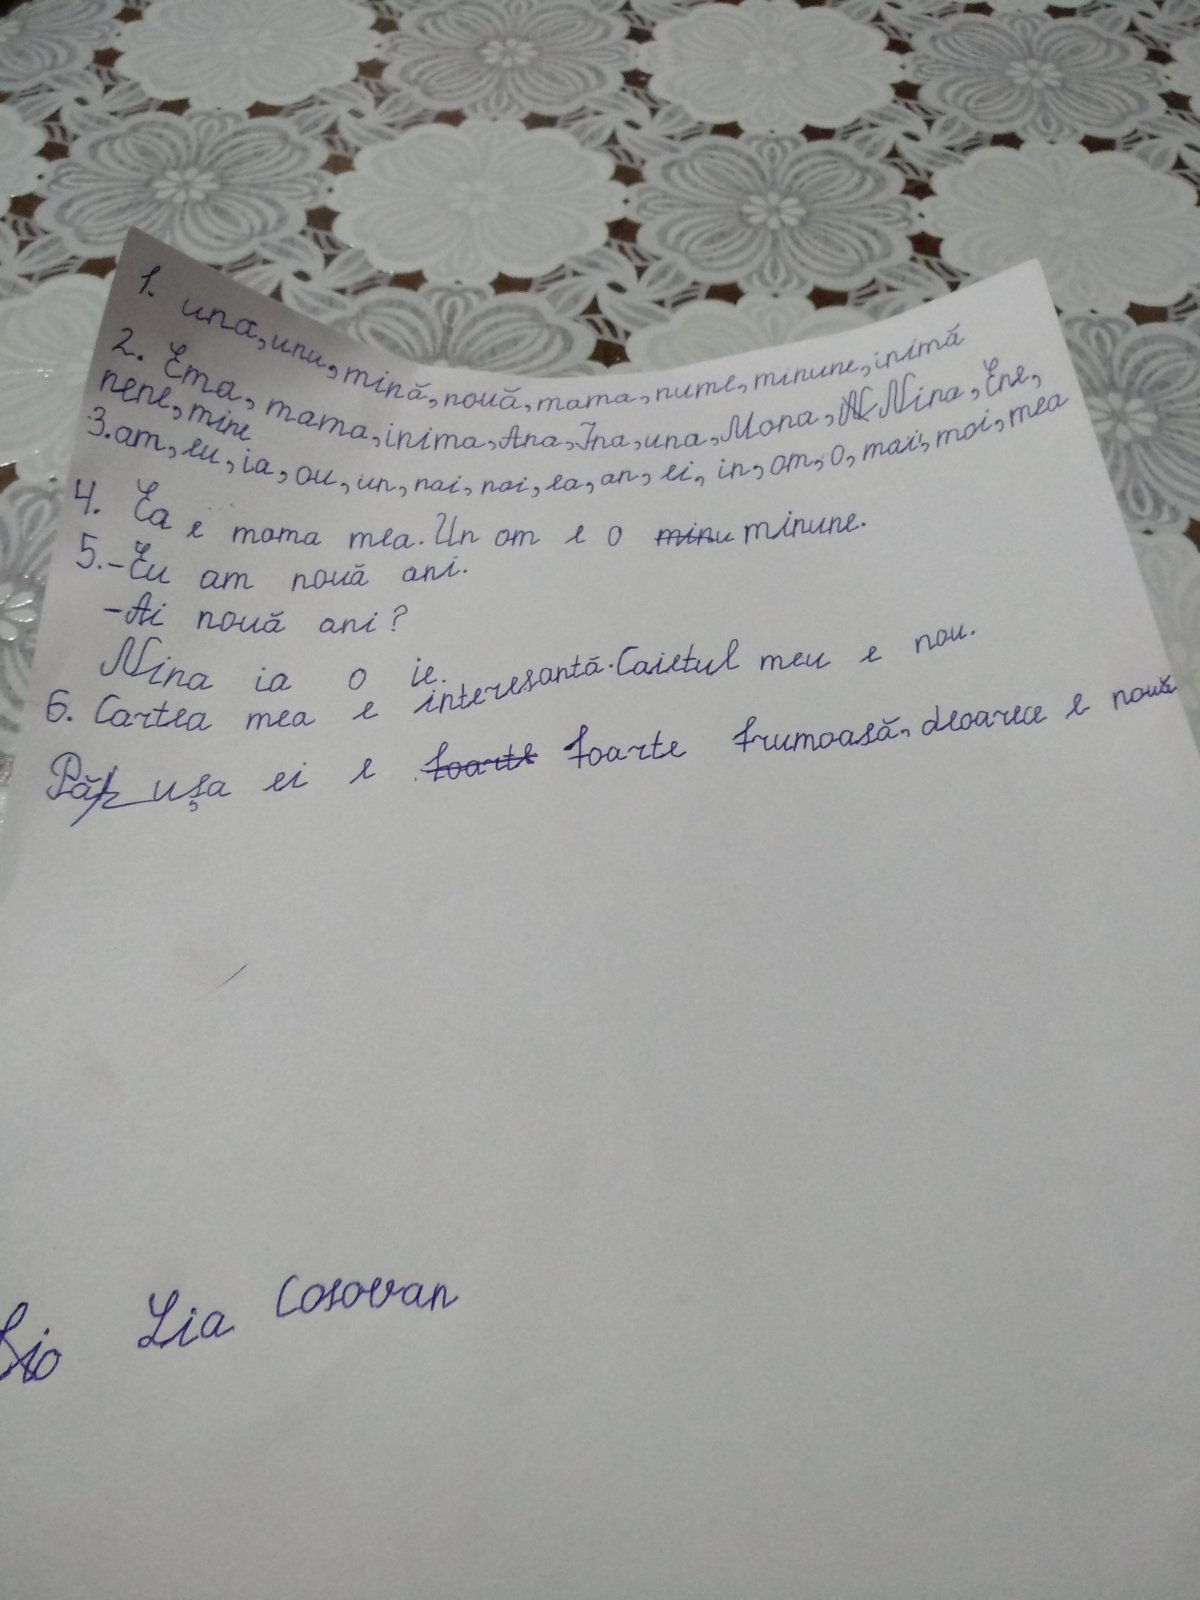 1. una, unu, mină, nouă, mama, nume, minune, inimă
2. Ema, mama, inima, Ana, Ina, una, Mona, Nina, Ene,
nene, mine
3. am, eu, ia, ou, un, nai, noi, ea, an, ei, in, om, o, mai, moi, mea
4. Ea e mama mea. Un om e o minu minune.
5. -Eu am nouă ani.
-Ai nouă ani?
Nina ia o ie.
6. Cartea mea e interesantă. Caietul meu e nou.
Păpușa ei e foarte foarte frumoasă, deoarece e nouă
Lia Cosovan